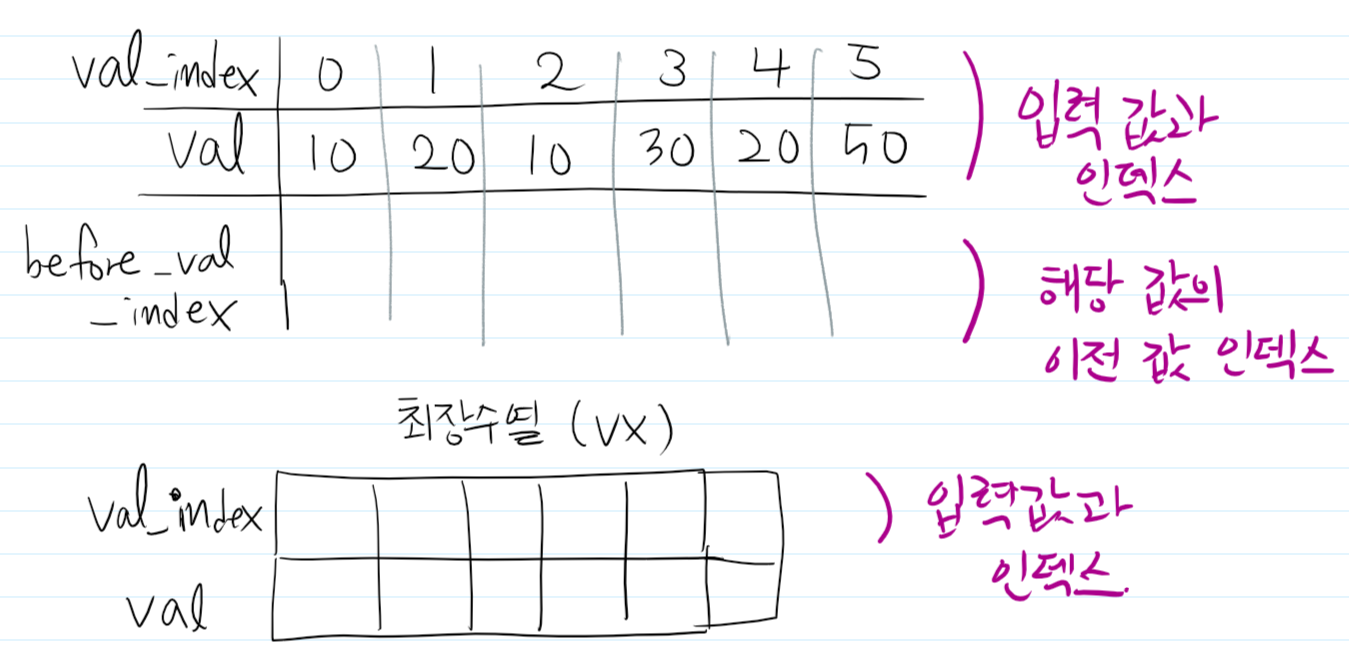 val_index 0 1 2 3 4 5
val 10 20 10 30 20 50
입력 값과
인덱스
before_val
_index
해당 값의
이전 값 인덱스
최장수열 (VX)
val_index
val
입력값과
인덱스.